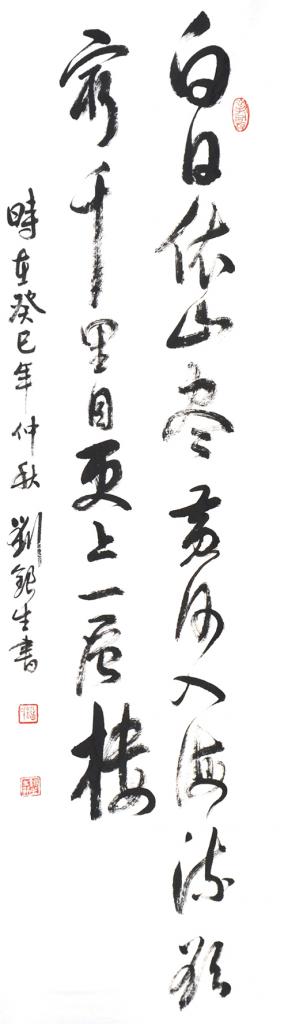 白日依山尽黄河入海流欲
穷千里目更上一层楼
時在癸巳年仲秋劉銀生書